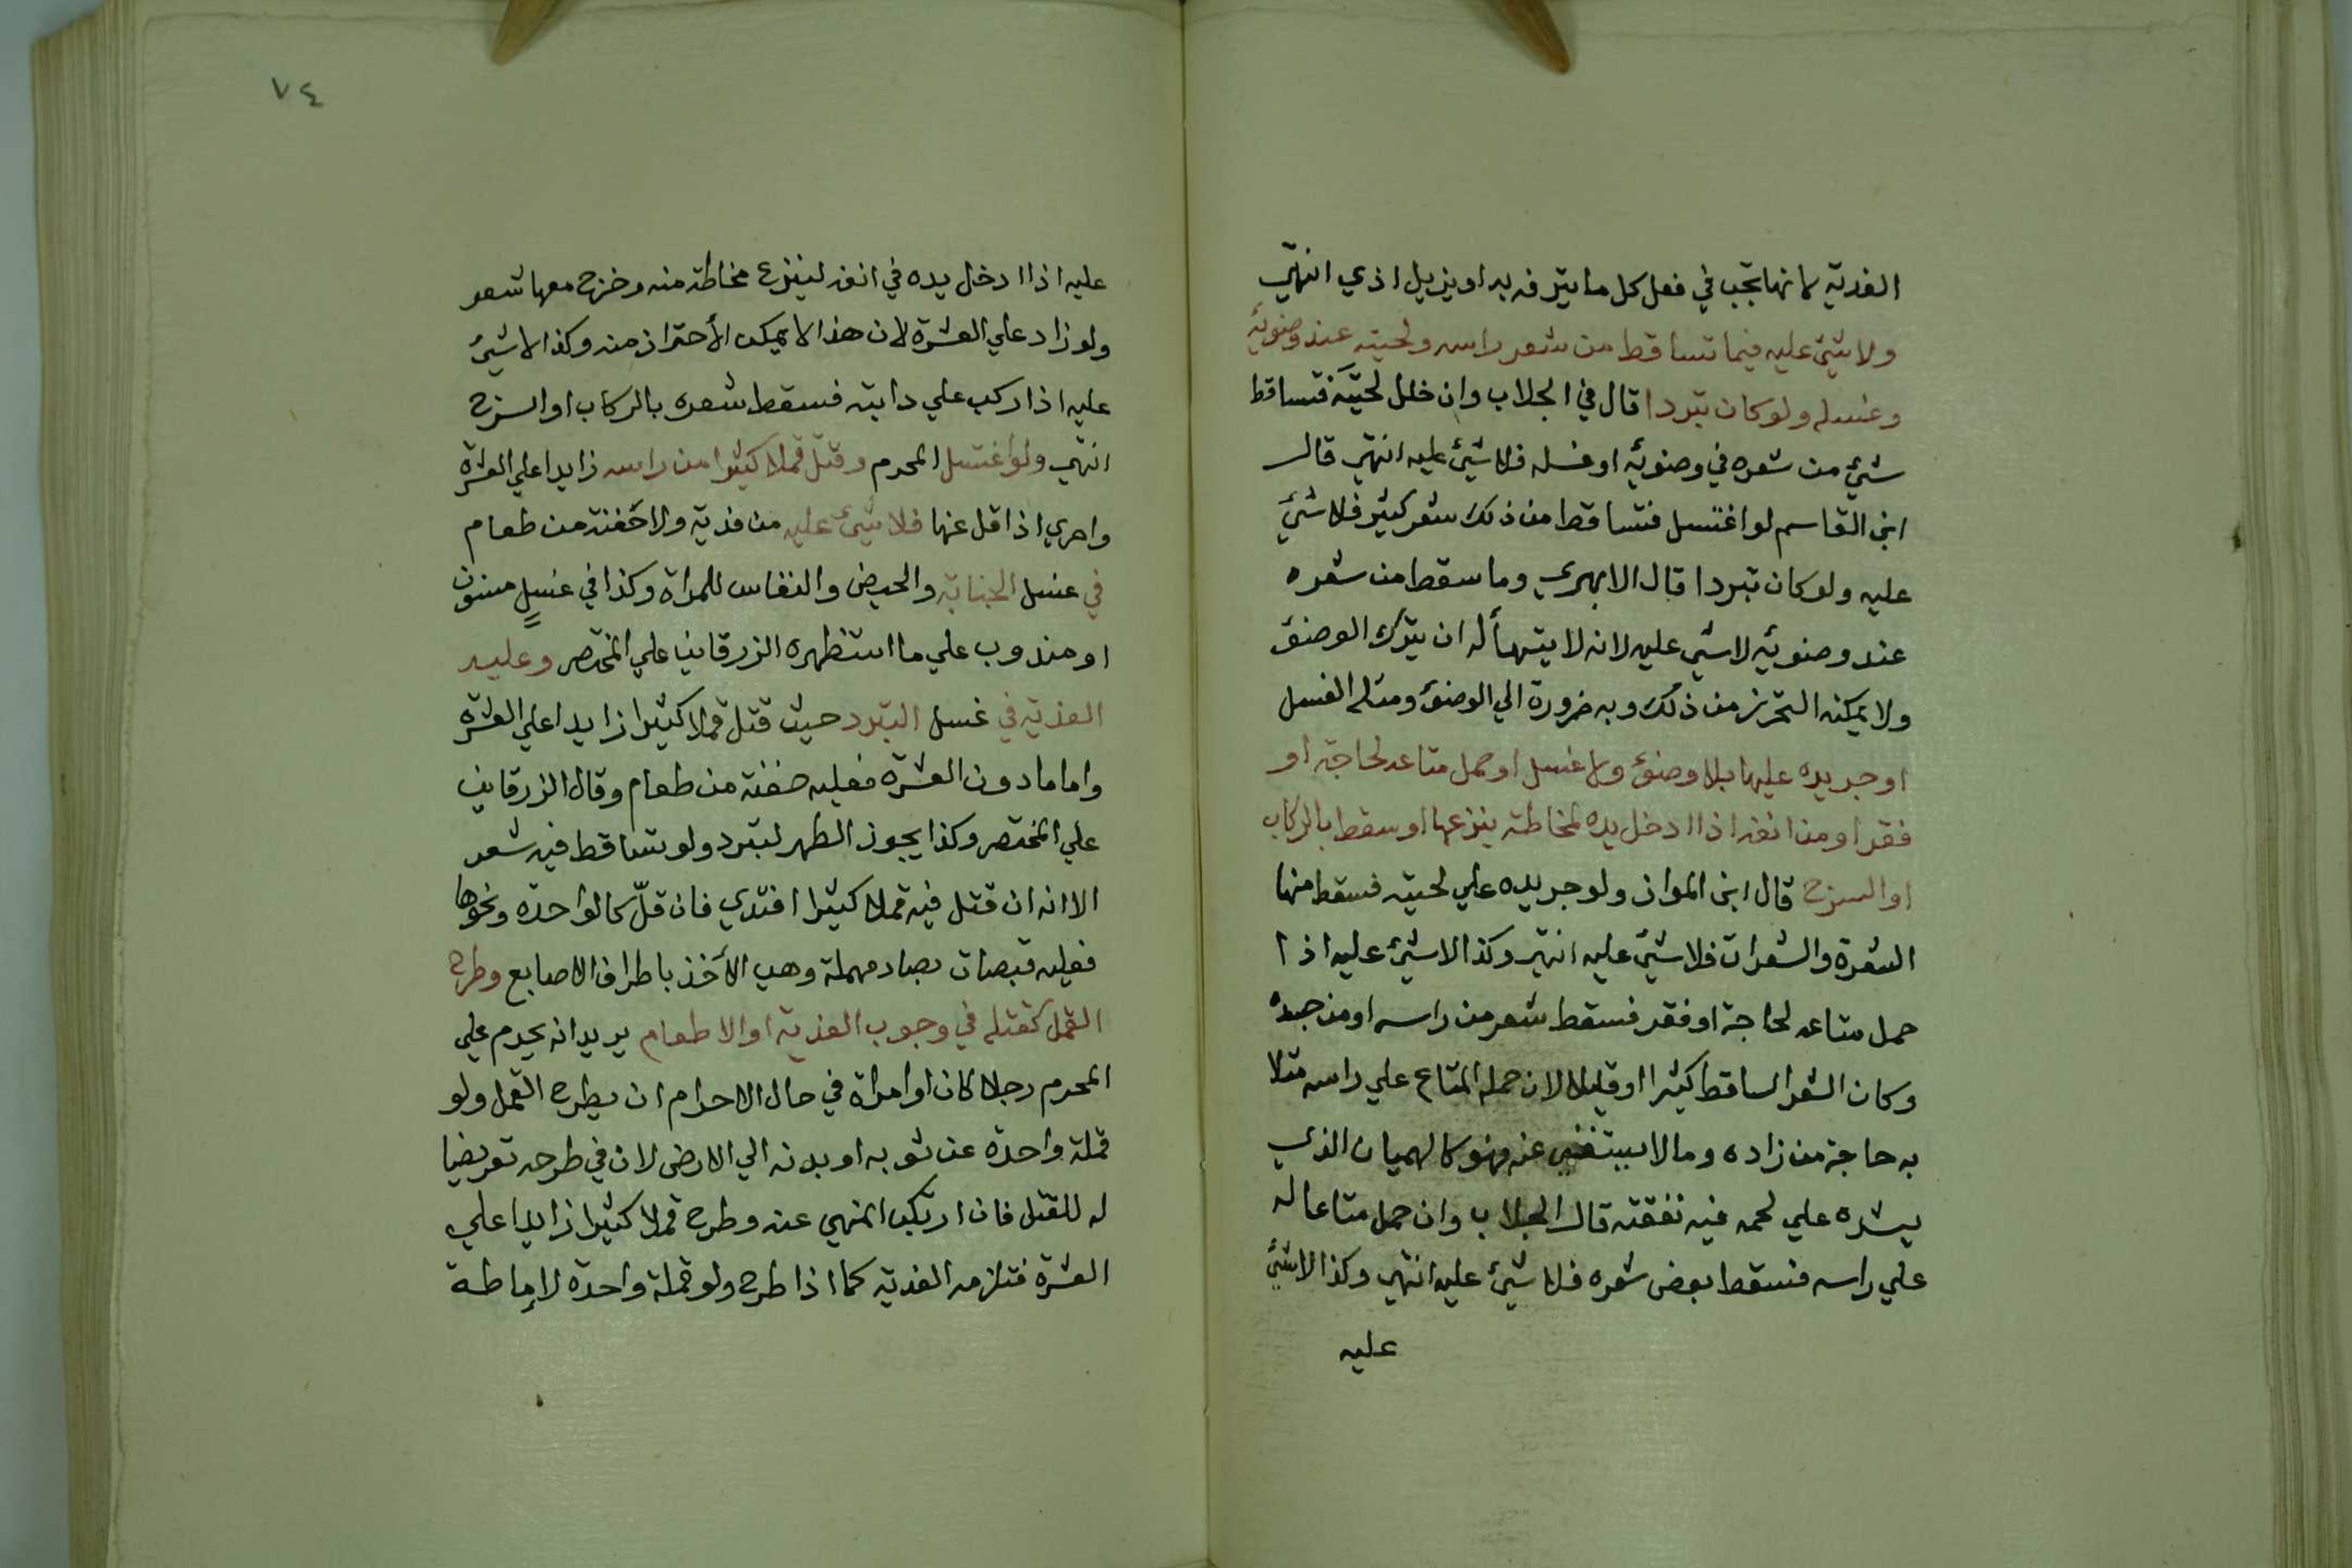 الفدية لانها تجب في فعل كل ما يترفه به او يزيل اذي انتهي
ولا شيئ عليه فيما تساقط من شعر راسه ولحيته عند وضوئه
وغسله ولو كان تبردا قال في الجلاب وان خلل لحيته فتساقط
شيئ من شعره في وضوئه او غسله فلا شيئ عليه انتهي قال
ابن القاسم لو اغتسل فتساقط من ذلك شعر كثير فلا شيئ
عليه ولو كان تبردا قال الابهري وما سقط من شعره
عند وضوئه لا شي عليه لانه لا يتهيأ له ان يترك الوضوء
ولا يمكنه التحرز من ذلك وبه ضرورة الي الوضوء ومثله الغسل
او جر يده عليها بلا وضوء ولا غسل او حمل متاعه لحاجة او
فقر او من انفه اذا ادخل يده لمخاطة ينزعها او سقط بالركاب
او السرج قال ابن المواز ولو جر يده علي لحيته فسقط منها
الشعرة والشعرات فلا شيئ عليه انتهي وكذا لا شيئ عليه اذا
حمل متاعه لحاجة او فقر فسقط شعر من راسه او من جسده
وكان الشعر الساقط كثيرا او قليلا لان حمله المتاع علي راسه مثلا
به حاجة من زاده وما لا يستغني عنه فهو كالهميان الذي
يشده علي لحمه فيه نفقته قال الجلاب وان حمل متاعا له
علي راسه فسقط بعض شعره فلا شيئ عليه انتهي وكذا لا شيئ
عليه
٧٤
عليه اذا ادخل يده في انفه لينزع مخاطة منه وخرج معها شعر
ولو زاد علي العشرة لان هذا لا يمكن الأحتراز منه وكذا لا شيئ
عليه اذا ركب علي دابته فسقط شعره بالركاب او السرج
انتهي ولو اغتسل المحرم وقتل قملا كثيرا من راسه زايدا علي العشرة
واحري اذا قل عنها فلا شيئ عليه من فدية ولا حفنة من طعام
في غسل الجنابة والحيض والنفاس للمراة وكذا في غسل مسنون
او مندوب علي ما استظهره الزرقاني علي المختصر وعليه
الفدية في غسل التبرد حيث قتل قملا كثيرا زايدا علي العشرة
واما ما دون العشرة فعليه حفنة من طعام وقال الزرقاني
علي المختصر وكذا يجوز الطهر لتبرد ولو تساقط فيه شعر
الا انه ان قتل فيه قملا كثيرا افتدي فان قلّ كالواحدة ونحوها
فعليه قبصات بصاد مهملة وهي الأخذ باطراف الاصابع وطرح
القمل كقتله في وجوب الفدية او الاطعام يريد انه يحرم علي
المحرم رجلا كان او امراة في حال الاحرام ان يطرح القمل ولو
قملة واحدة عن ثوبه او بدنه الي الارض لان في طرحه تعريضا
له للقتل فان ارتكب المنهي عنه وطرح قملا كثيرا زايدا علي
العشرة فتلزمه الفدية كما اذا طرح ولو قملة واحدة لاماطة